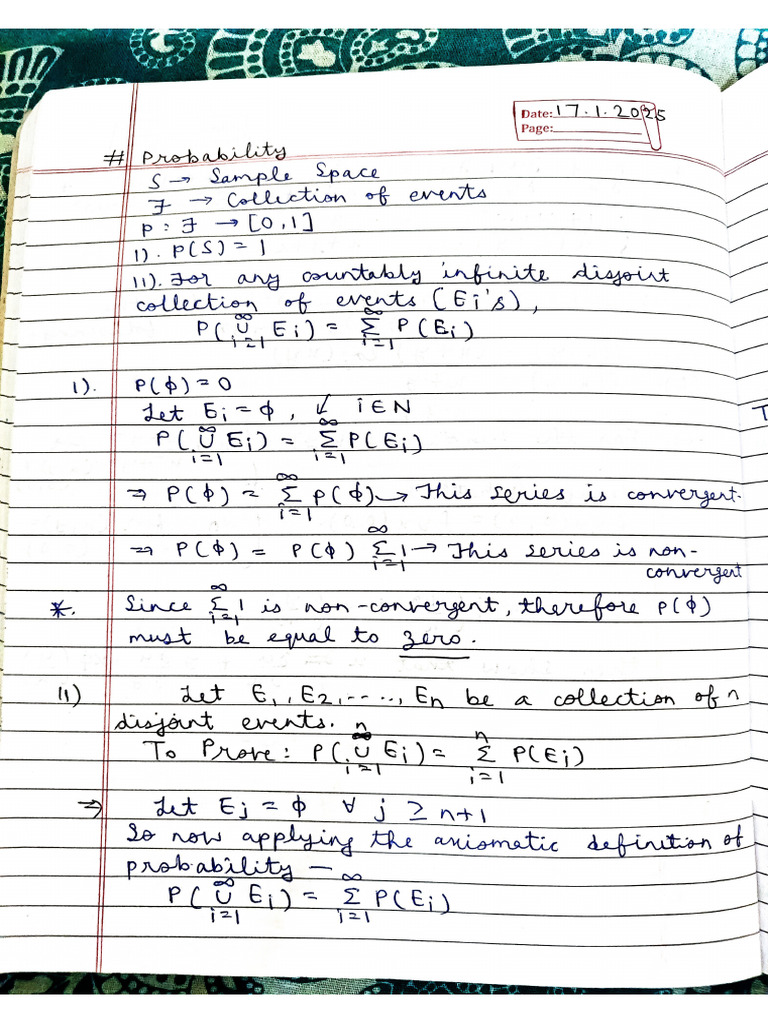 Date: 17.1.2025
Page:
# Probability
S → Sample Space
F → Collection of events
P : F → [0,1]
I). P(S) = 1
II). For any countably infinite disjoint
collection of events (Ei's),
P(∞∪i=1 Ei) = ∞Σi=1 P(Ei)
I). P(ϕ) = 0
Let Ei = ϕ, i ∈ N
P(∞∪i=1 Ei) = ∞Σi=1 P(Ei)
⇒ P(ϕ) = ∞Σi=1 P(ϕ) → This series is convergent.
⇒ P(ϕ) = P(ϕ) ∞Σi=1 1 → This series is non-
convergent
*. Since ∞Σi=1 1 is non-convergent, therefore P(ϕ)
must be equal to zero.
II) Let E1, E2, ----, En be a collection of n
disjoint events.
To Prove: P(n∪i=1 Ei) = nΣi=1 P(Ei)
⇒ Let Ej = ϕ ∀ j ≥ n+1
So now applying the axiomatic definition of
probability —
P(∞∪i=1 Ei) = ∞Σi=1 P(Ei)